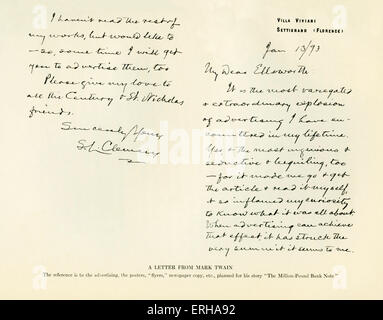 VILLA VIVIANI
SETTIGNANO (FLORENCE)
Jan 13/93
My Dear Ellsworth
It is the most varegated
& extraordinary explosion
of advertising I have en-
countered in my lifetime.
Yes & the most ingenious &
seductive & beguiling, too
— for it made me go & get
the article & read it myself,
it so inflamed my curiosity
to know what it was all about.
When advertising can achieve
that effect it has struck the
very summit it seems to me.
I haven't read the rest of
my works, but would like to
— so, some time I will get
you to advertise them, too
Please give my love to
all the Century & St. Nicholas
friends.
Sincerely Yours
S. L. Clemens
A LETTER FROM MARK TWAIN
The reference is to the advertising, the posters, "flyers," newspaper copy, etc., planned for his story "The Million-Pound Bank Note"
alamy stock photo
ERHA92